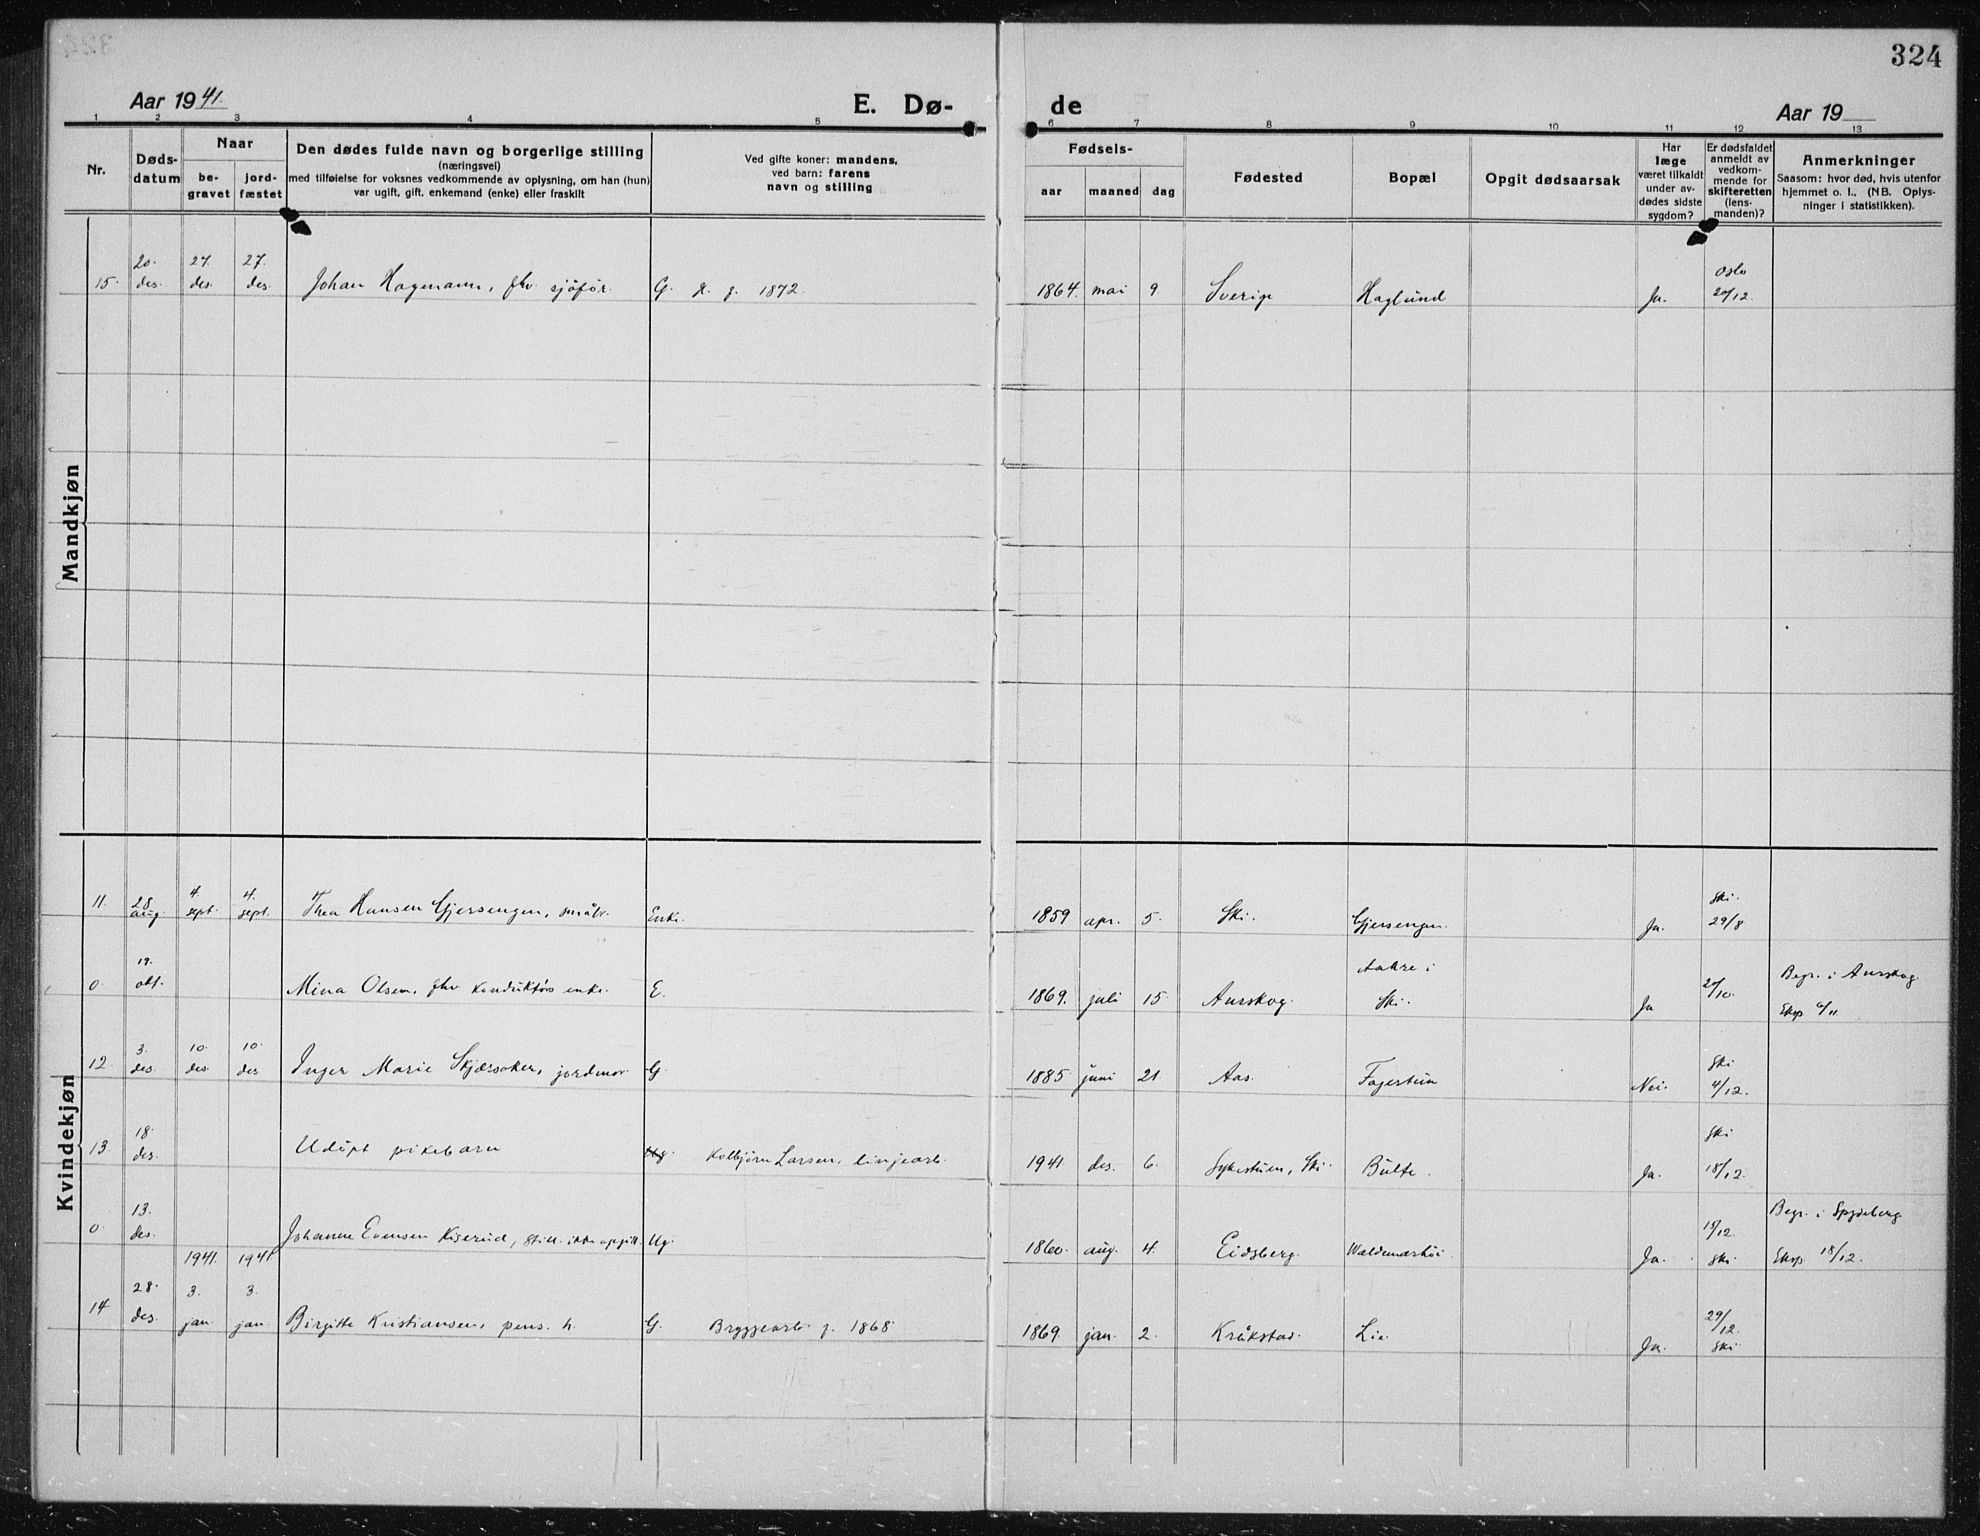 324
Aar 1941.
E. Dø-
de
Aar 19
1 2 3 4 5 6 7 8 9 10 11 12 13
Nr.
Døds-
datum
Naar
be-
gravet
jord-
fæstet
Den dødes fulde navn og borgerlige stilling
(næringsvei)
med tilføielse for voksnes vedkommende av oplysning, om han (hun)
var ugift, gift, enkemand (enke) eller fraskilt
Ved gifte koner: mandens,
ved barn: farens
navn og stilling
Fødsels-
aar maaned dag
Fødested
Bopæl
Opgit dødsaarsak
Har
læge
været tilkaldt
under av-
dødes sidste
sygdom?
Er dødsfaldet
anmeldt av
vedkom-
mende for
skifteretten
(lens-
manden)?
Anmerkninger
Saasom: hvor død, hvis utenfor
hjemmet o. l.. (NB. Oplys-
ninger i statistikken).
Mandkjøn
20. 27. 27. Oslo
15. des. des. des. Johan Hagemann, fhv. sjøfør. G. g. f. 1872. 1864. mai 9 Sverige Haglund Ja. 20/12.
Kvindekjøn
28. 4. 4. Ski.
11. aug. sept. sept. Thea Hansen Gjersengen, småbr. Enke. 1859 apr. 5. Ski. Gjersengen. Ja. 29/8
19. Aakre i Begr. i Aurskog.
0. okt. Mina Olsen, fhv. konduktørs enke. E. 1869. juli 15. Aurskog. Ski. Ja 20/10. Eksp. 6/11
3. 10. 10. Ski
12. des. des. des Inger Marie Skjærsaker, jordmor G. 1885 juni 21. Aas. Fagertun Nei. 4/12.
18. Ski
13. des. Udøpt pikebarn Ug. Kolbjørn Larsen, linjearb. 1941. des. 6. Sykestuen, Ski. Bulte. Ja. 18/12.
13. 15/12. Begr. i Spydeberg
0. des. Johanne Evensen Kiserud, still. ikke opgitt. Ug. 1860. aug. 4. Eidsberg. Waldemarhøi. Ja. Ski Eksp. 18/12.
1941. 1941
28. 3. 3. 29/12.
14 des. jan. jan. Birgitte Kristiansen, pens. h. G. Bryggearb. f. 1868. 1869 jan. 2. Kråkstad. Lie. Ja. Ski